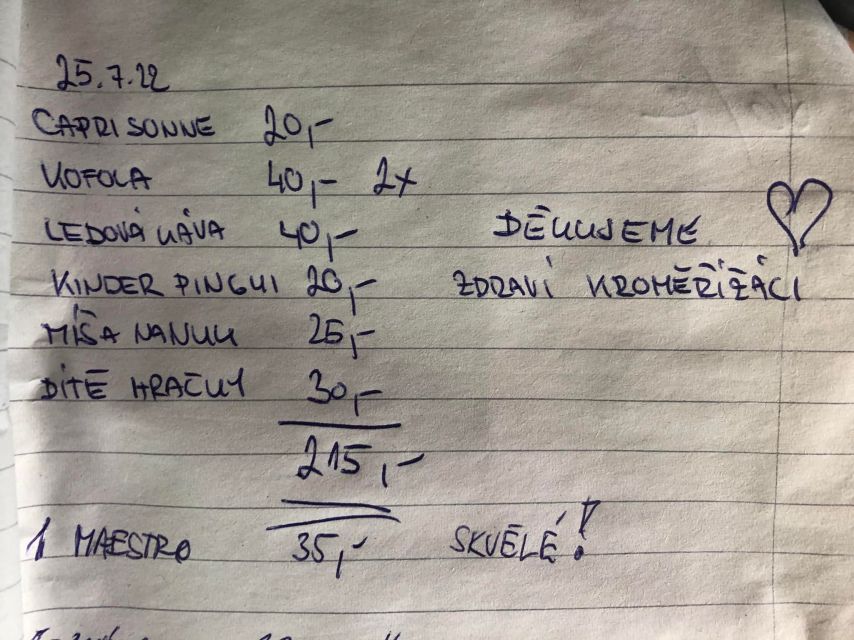 25.7.22
CAPRISONNE 20,-
KOFOLA 40,- 2x
LEDOVÁ KÁVA 40,-
DĚKUJEME ♡
KINDER PINGUI 20,-
ZDRAVÍ KROMĚŘÍŽÁCI
MÍŠA NANUK 25,-
DÍTĚ HRAČKY 30,-
215,-
1 MAESTRO 35,- SKVĚLÉ!